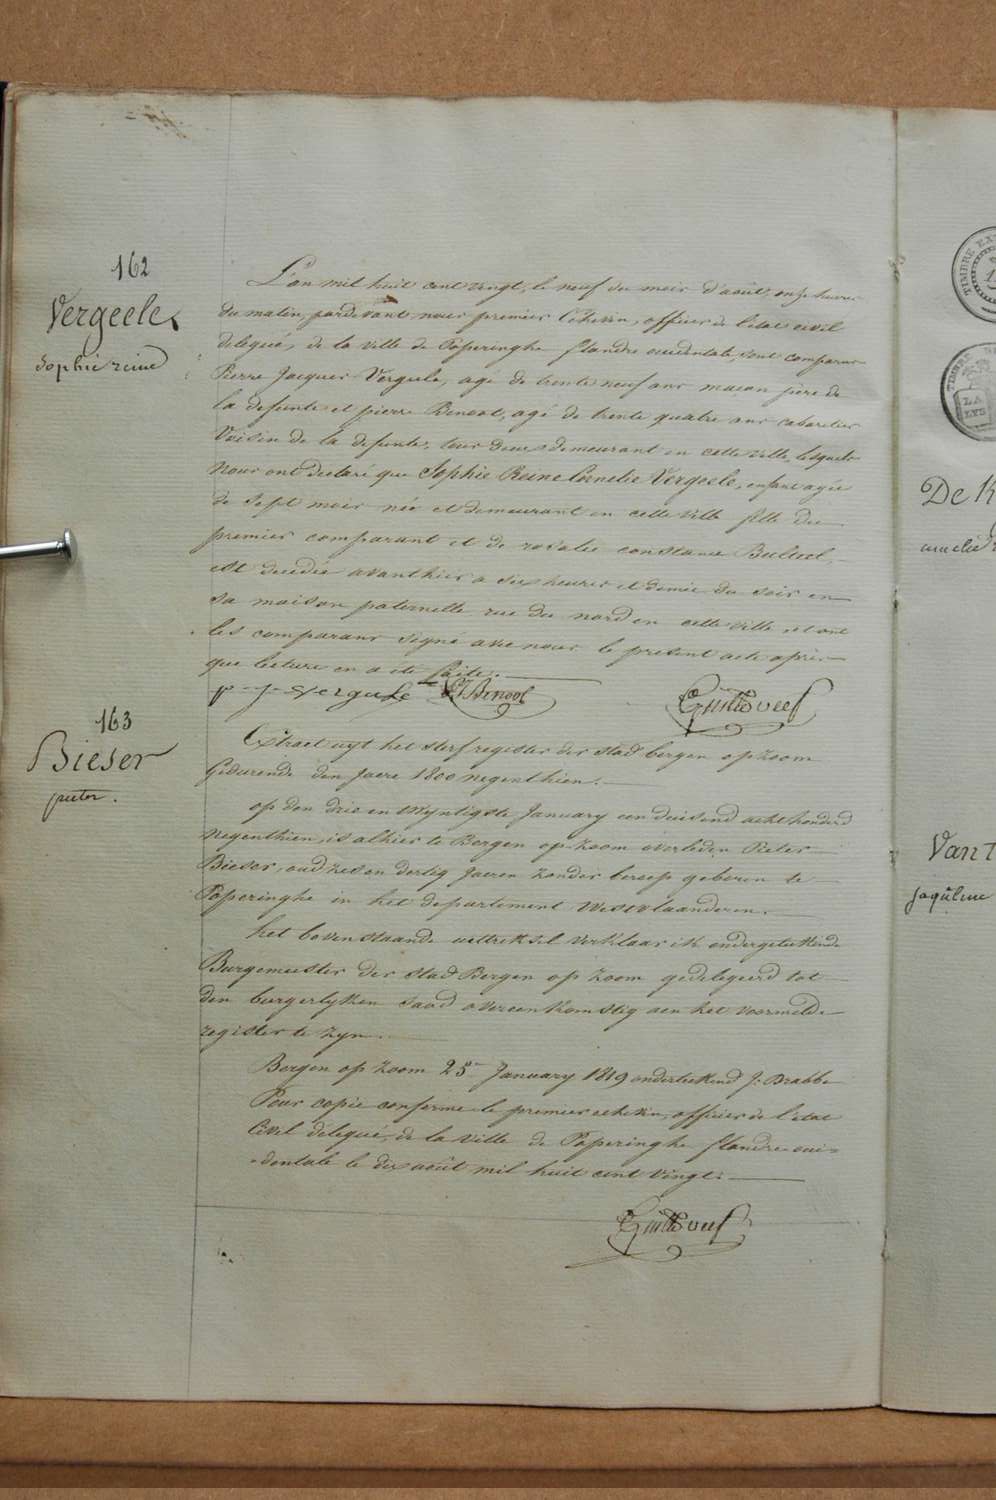 162
Vergeele
sophie reine
L'an mil huit cent vingt, le neuf du mois d'août, onze heures
du matin, pardevant nous premier Echevin, officier de l'etat civil
delegué, de la ville de Poperinghe flandre occidentale, sont comparus
Pierre Jacques Vergeele, agé de trente neuf ans maçon père de
la defunte et pierre Benoot, agé de trente quatre ans cabaretier
Voisin de la defunte, tous deux demeurant en cette ville, lesquels
Nous ont declaré que Sophie Reine Cornelie Vergeele, enfant agée
de sept mois née et demeurant en cette ville fille du
premier comparant et de rosalie constance Bulteel,
est decedée avanthier a six heures et demie du soir en
sa maison paternelle rue du nord en cette ville, et ont
les comparans signé avec nous le present acte après
que lecture en a été faite.
p - J - Vergeele
163
Bieser
pieter.
Extract uyt het sterf register der stad bergen op zoom
Gedurende den Jaere 1800 negenthien.
op den drie en twyntigste January een duisend achthonderd
negenthien, is alhier te Bergen op zoom overleden Pieter
Bieser, oud zes en dertig Jaeren zonder beroep geboren te
Poperinghe in het departement Westvlaanderen.
het bovenstaande uittreksel verklaar ik ondergetekende
Burgemeester der stad Bergen op zoom gedelegeerd tot
den burgerlyken staad overeenkomstig aen het voormelde
register te zyn.
Bergen op zoom 25 January 1819 ondertekend J: Brabbe
Pour copie conforme le premier echevin, officier de l'etat
Civil délegué, de la ville de Poperinghe flandre occi=
=dentale le dix août mil huit cent vingt.
TIMBRE
TIMBRE
LA
LYS
De K
amelie
Van T
Jaqueline